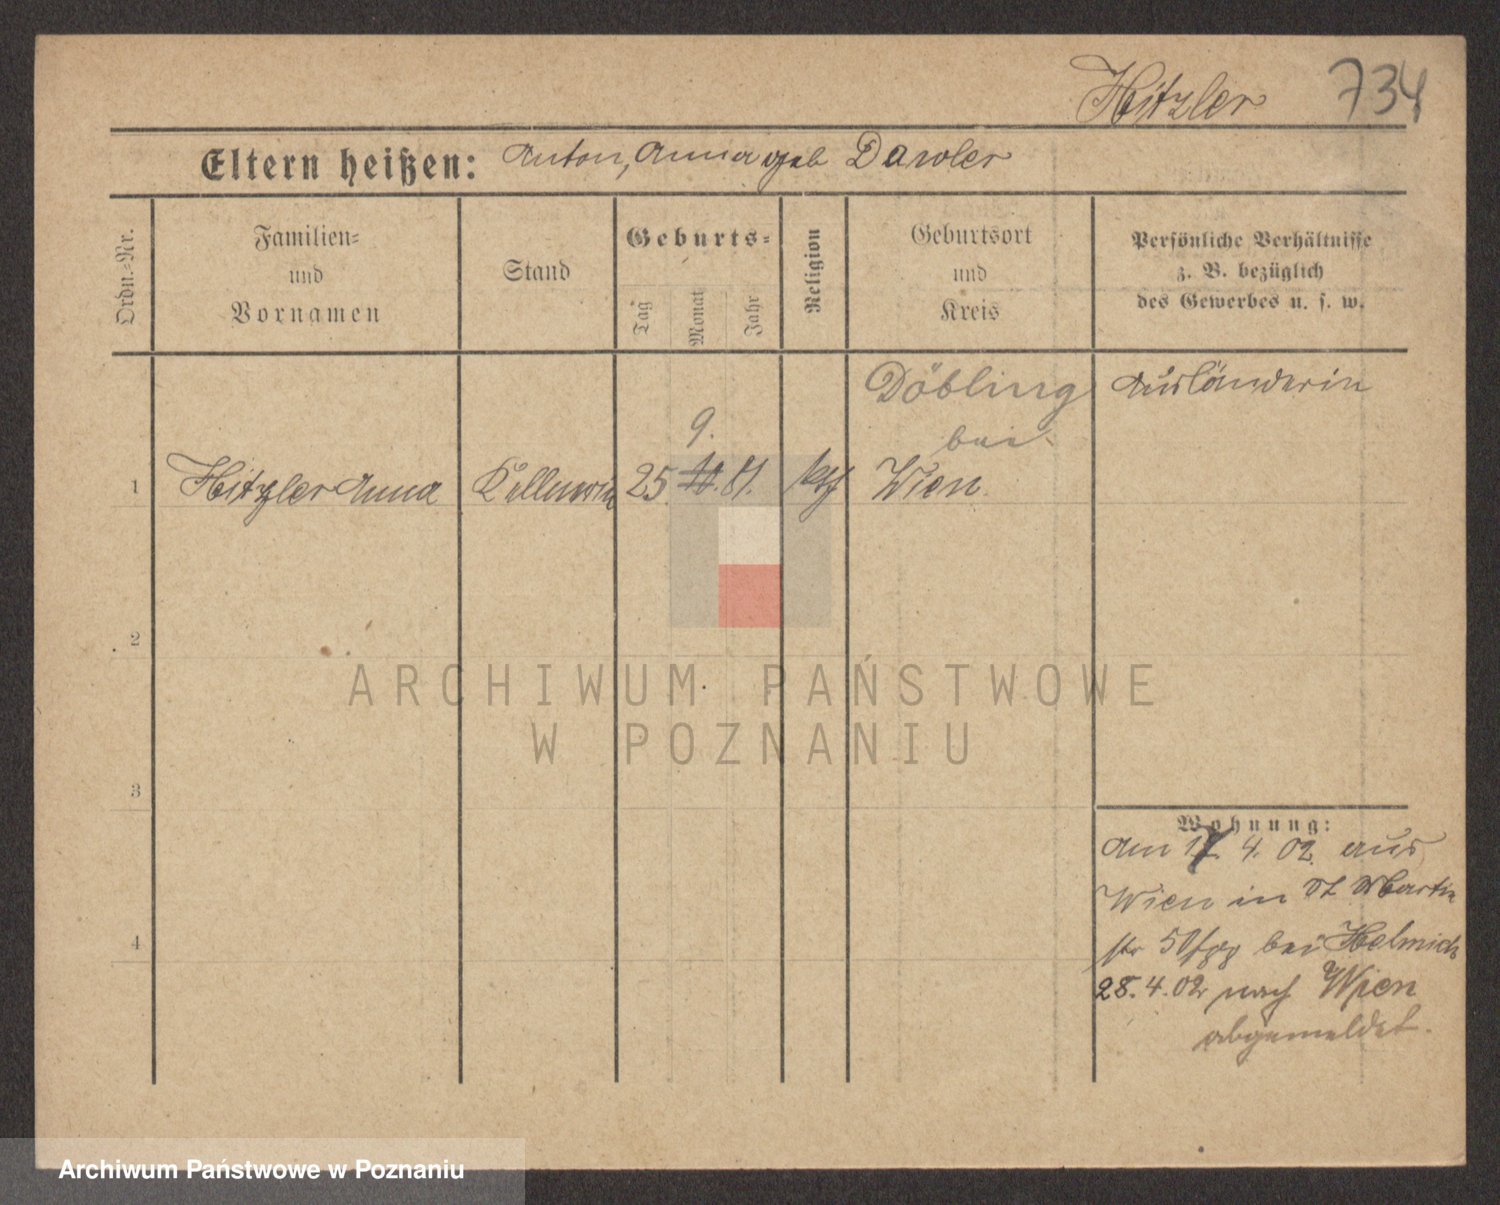 Hitzler 734
Eltern heißen: Anton, Anna geb Daroler
Ordn.-Nr.
Familien-
und
Vornamen
Stand
Geburts-
Tag
Monat
Jahr
Religion
Geburtsort
und
Kreis
Persönliche Verhältnisse
z. B. bezüglich
des Gewerbes u. s. w.
Döbling Ausländerin
9.
bei
1 Hitzler Anna Kellnerin 25 11. 81. kth Wien
2
ARCHIWUM PAŃSTWOWE
W POZNANIU
3
Wohnung:
Am 17. 4. 02. aus
Wien in St Martin
str 50/ bei Helmich
28.4.02 nach Wien
abgemeldet.
4
Archiwum Państwowe w Poznaniu